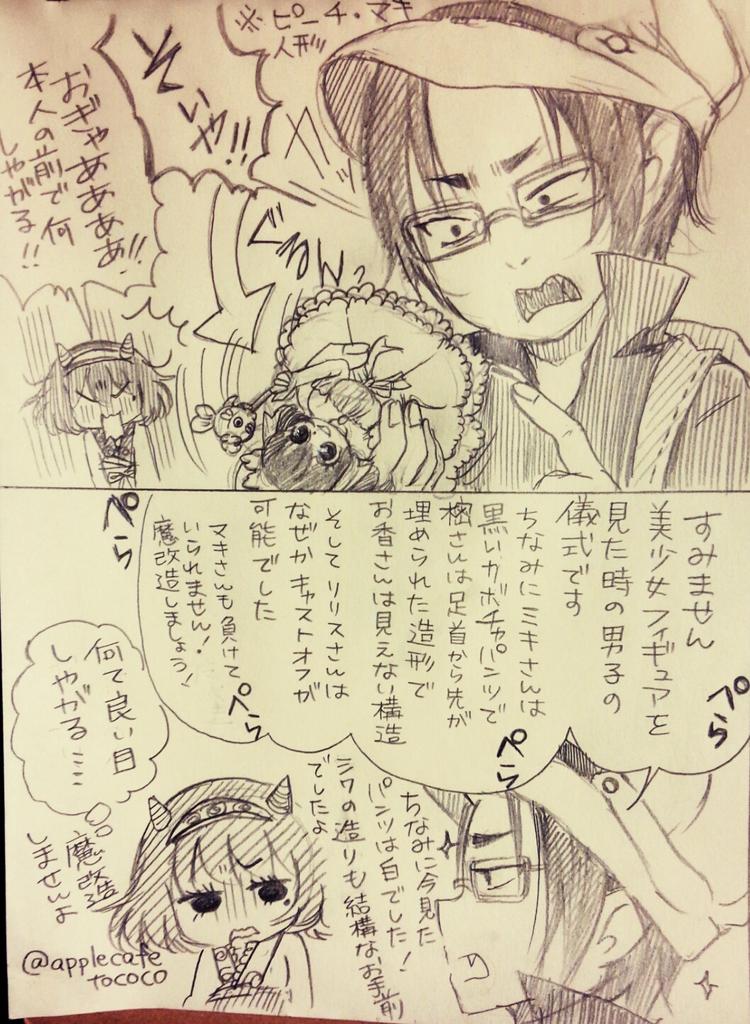 ※ピーチ・マキ
人形
そいや!!
おぎゃああああ!!
本人の前で何
しやがる!!
ぐるんっ
すみません
美少女フィギュアを
見た時の男子の
儀式です
ちなみにミキさんは
黒いカボチャパンツで
樒さんは足首から先が
埋められた造形で
お香さんは見えない構造
そしてリリスさんは
なぜかキャストオフが
可能でした
マキさんも負けて
いられません!
魔改造しましょう!
ぺら
ぺら
ぺら
ぺら
ちなみに今見た
パンツは白でした!
シワの造りも結構なお手前
でしたよ
何て良い目
しやがる…
魔改造
しませんよ
@applecafe
tococo